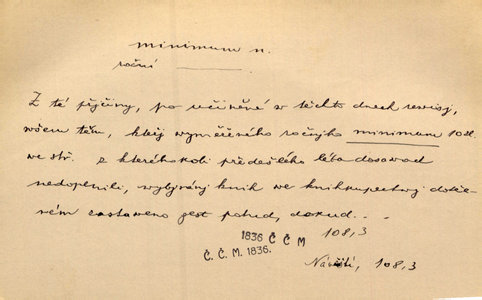 minimum n.
roční
Z té příčiny, po učiněné w těchto dnech rewisj,
wšem těm, kteřj wyměřeného ročnjho minimum 10 zl.
we stř. z kteréhokoli předešlého léta dosawad
nedoplnili, wybjránj knih we knihkupectwj dotče-
ném zastaweno gest potud, dokud...
108,3
1836 Č Č M
Č. Č. M. 1836.
108,3